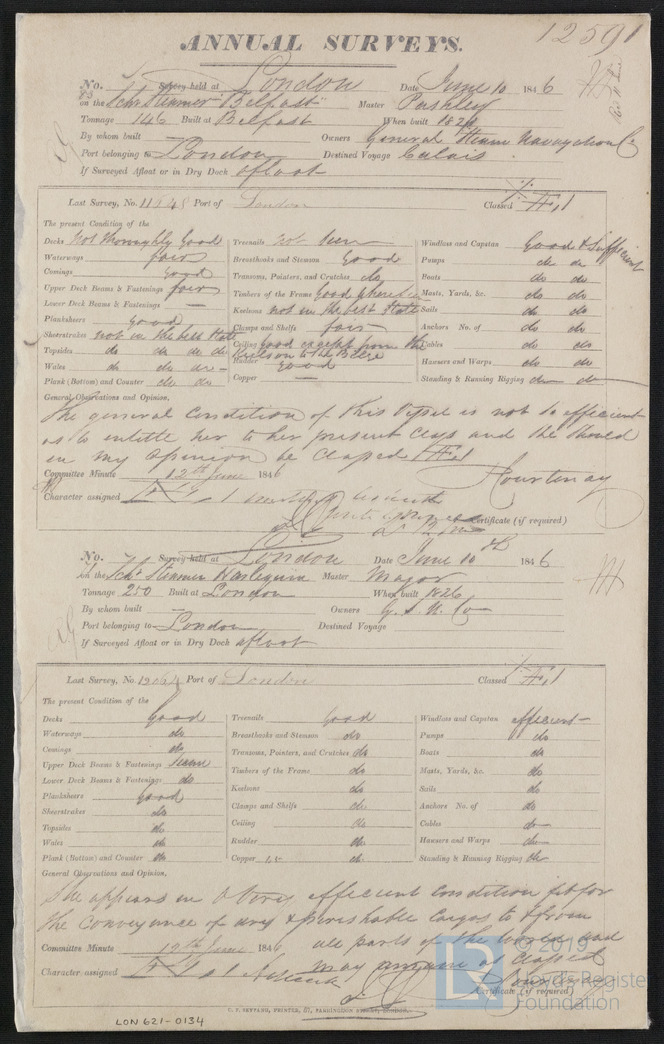 12591
ANNUAL SURVEYS.
No. Survey held at London Date June 10 1846
on the Schr Steamer "Belfast" Master Pashley
Tonnage 146 Built at Belfast When built 1820
By whom built Owners General Steam Navigation Co
Port belonging to London Destined Voyage Calais
If Surveyed Afloat or in Dry Dock afloat
Last Survey, No. Port of London Classed Æ,1
The present Condition of the
Decks not thoroughly good
Waterways fair
Comings good
Upper Deck Beams & Fastenings fair
Lower Deck Beams & Fastenings —
Planksheers good
Sheerstrakes not in the best state
Topsides do do do do
Wales do do do —
Plank (Bottom) and Counter do do
Treenails not seen
Breasthooks and Stemson Good
Transoms, Pointers, and Crutches do
Timbers of the Frame Good where seen
Keelsons not in the best state
Clamps and Shelfs fair
Ceiling Good except from the
Keelson to the Bilge
Rudder good
Copper —
Windlass and Capstan Good & Sufficient
Pumps do do
Boats do do
Masts, Yards, &c. do do
Sails do do
Anchors No. of do do
Cables do do
Hawsers and Warps do do
Standing & Running Rigging do do
General Observations and Opinion,
The general Condition of this Vessel is not so efficient
as to entitle her to her present Class and she should
in my opinion be Classed Æ,1
Courtenay
Committee Minute 12th June 1846
Character assigned
Certificate (if required)
No. Survey held at London Date June 10th 1846
on the Schr Steamer Harlequin Master Major
Tonnage 250 Built at London When built 1826
By whom built — Owners G. S. N. Co
Port belonging to London Destined Voyage
If Surveyed Afloat or in Dry Dock afloat
Last Survey, No. Port of London Classed Æ,1
The present Condition of the
Decks Good
Waterways do
Comings do
Upper Deck Beams & Fastenings seem
Lower Deck Beams & Fastenings do
Planksheers good
Sheerstrakes do
Topsides do
Wales do
Plank (Bottom) and Counter do
Treenails Good
Breasthooks and Stemson do
Transoms, Pointers, and Crutches do
Timbers of the Frame do
Keelsons do
Clamps and Shelfs do
Ceiling do
Rudder do
Copper do
Windlass and Capstan efficient
Pumps do
Boats do
Masts, Yards, &c. do
Sails do
Anchors No. of do
Cables do
Hawsers and Warps do
Standing & Running Rigging do
General Observations and Opinion,
She appears in a very efficient condition fit for
the conveyance of dry & perishable cargos to & from
all parts of the World and
Committee Minute 12th June 1846
may remain as Classed
Character assigned
Courtenay
Certificate (if required)
LON 621-0134
© 2019
Lloyd's Register
Foundation
LR